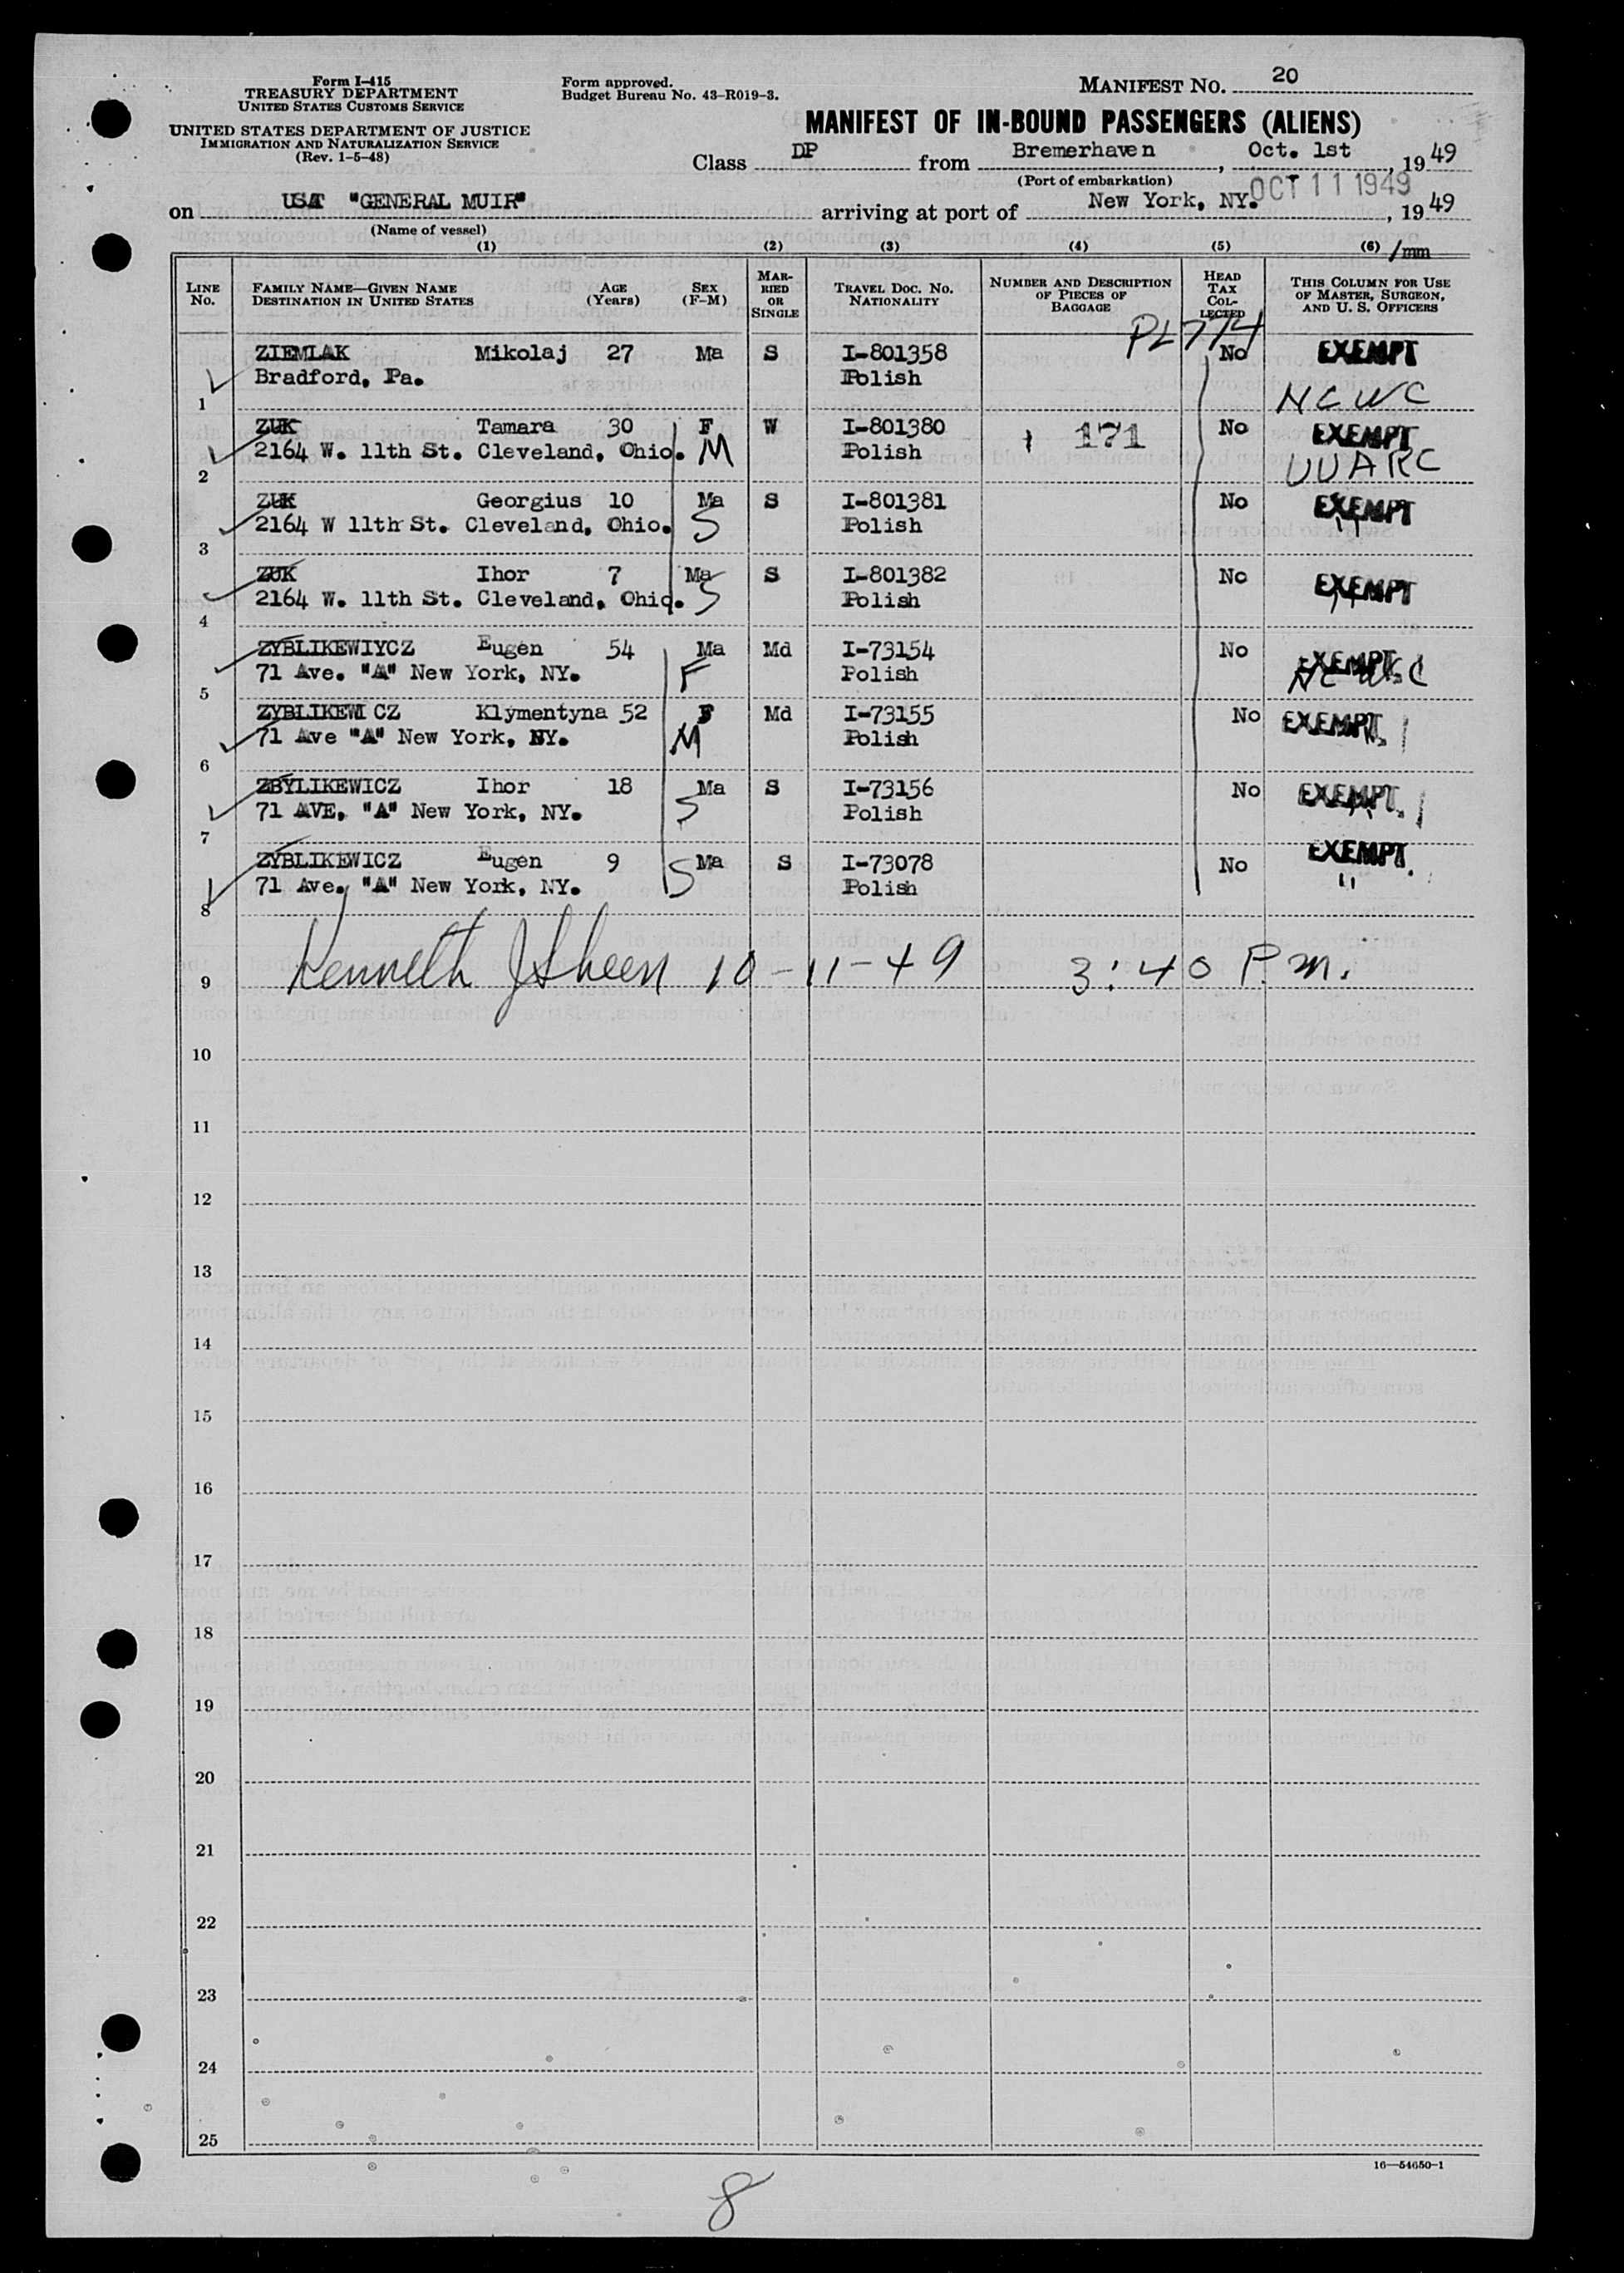 Form I-415
TREASURY DEPARTMENT
UNITED STATES CUSTOMS SERVICE
UNITED STATES DEPARTMENT OF JUSTICE
IMMIGRATION AND NATURALIZATION SERVICE
(Rev. 1-5-48)
Form approved.
Budget Bureau No. 43-R019-3.
MANIFEST NO. 20
MANIFEST OF IN-BOUND PASSENGERS (ALIENS)
Class DP from Bremerhaven, Oct. 1st, 1949
(Port of embarkation)
OCT 11 1949
on USAT "GENERAL MUIR" arriving at port of New York, NY., 1949
(Name of vessel)
(1) (2) (3) (4) (5) (6) /mm
LINE No. FAMILY NAME—GIVEN NAME DESTINATION IN UNITED STATES AGE (Years) SEX (F-M) MARRIED OR SINGLE TRAVEL DOC. NO. NATIONALITY NUMBER AND DESCRIPTION OF PIECES OF BAGGAGE HEAD TAX COLLECTED THIS COLUMN FOR USE OF MASTER, SURGEON, AND U. S. OFFICERS
PL 774
ZIEMLAK Mikolaj 27 Ma S I-801358 No EXEMPT
Bradford, Pa. Polish
1 NCWC
ZUK Tamara 30 F W I-801380 171 No EXEMPT
2164 W. 11th St. Cleveland, Ohio. M Polish UUARC
2
ZUK Georgius 10 Ma S I-801381 No EXEMPT
2164 W 11th St. Cleveland, Ohio. S Polish "
3
ZUK Ihor 7 Ma S I-801382 No EXEMPT
2164 W. 11th St. Cleveland, Ohio. S Polish "
4
ZYBLIKEWIYCZ Eugen 54 Ma Md I-73154 No EXEMPT
71 Ave. "A" New York, NY. F Polish NCWC
5
ZYBLIKEWI CZ Klymentyna 52 F Md I-73155 No EXEMPT
71 Ave "A" New York, NY. M Polish "
6
ZBYLIKEWICZ Ihor 18 Ma S I-73156 No EXEMPT
71 AVE. "A" New York, NY. S Polish "
7
ZYBLIKEWICZ Eugen 9 Ma S I-73078 No EXEMPT
71 Ave. "A" New York, NY. S Polish "
8
9 Kenneth J Sheen 10-11-49 3:40 P.m.
10
11
12
13
14
15
16
17
18
19
20
21
22
23
24
25
16—54650-1
8